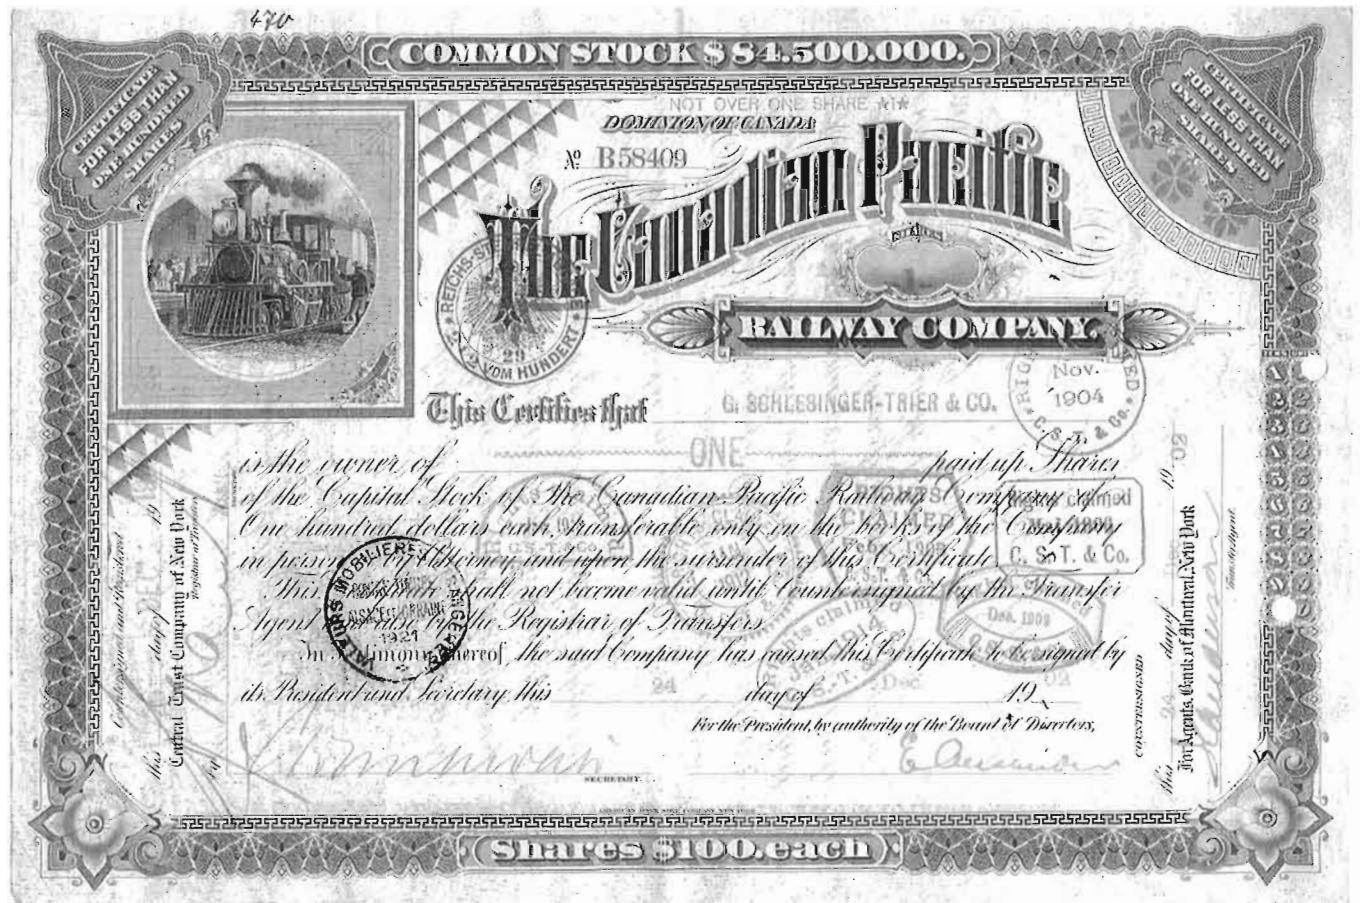 470
COMMON STOCK $84.500.000.
CERTIFICATE
FOR LESS THAN
ONE HUNDRED
SHARES
CERTIFICATE
FOR LESS THAN
ONE HUNDRED
SHARES
NOT OVER ONE SHARE ★1★
DOMINION OF CANADA
No B58409
The Canadian Pacific
SHARES
RAILWAY COMPANY.
VOM HUNDERT
29
Nov.
1904
C. S. T. & Co.
This Certifies that G. SCHLESINGER-TRIER & CO.
is the owner of ONE paid up Shares
of the Capital Stock of The Canadian Pacific Railway Company of
One hundred dollars each, transferable only on the books of the Company
in person or by Attorney and upon the surrender of this Certificate
This Certificate shall not become valid until Countersigned by the Transfer
Agent and also by the Registrar of Transfers.
In Testimony whereof the said Company has caused this Certificate to be signed by
its President and Secretary this 24 day of Dec 1902
For the President, by authority of the Board of Directors,
SECRETARY.
claimed
C. S. T. & Co.
Dec. 1909
claimed
1914
VALEURS MOBILIERES
ALSACE-LORRAINE
1921
Countersigned and Registered
this day of DEC 19
Central Trust Company of New York
Registrar of Transfers
by
COUNTERSIGNED
this 24 day of Dec 1902
For Agents, Bank of Montreal, New York
Transfer Agent.
AMERICAN BANK NOTE COMPANY, NEW YORK
Shares $100. each